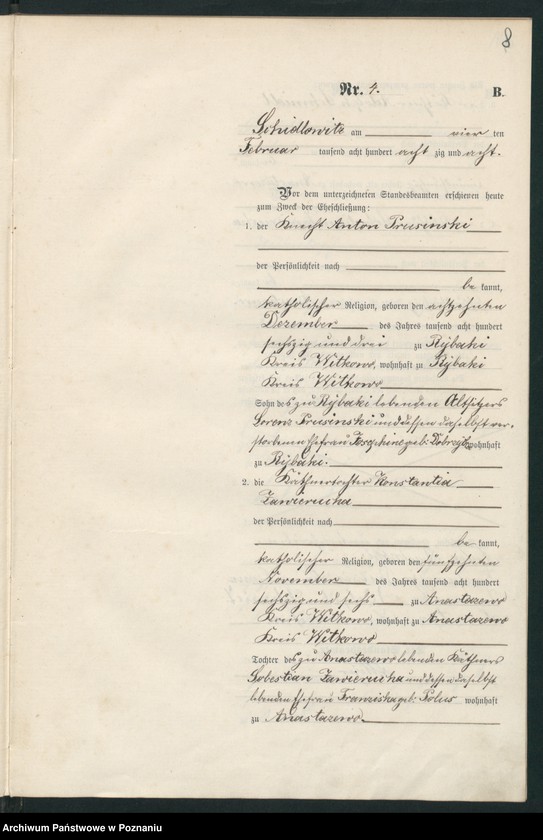 8
Nr. 4. B.
Schidlowitz am vier ten
Februar tausend acht hundert acht zig und acht.
Vor dem unterzeichneten Standesbeamten erschienen heute
zum Zweck der Eheschließung:
1. der Knecht Anton Prusinski
der Persönlichkeit nach
be kannt,
katholischer Religion, geboren den achtzehnten
Dezember des Jahres tausend acht hundert
sechszig und drei zu Rybaki
Kreis Witkowo, wohnhaft zu Rybaki
Kreis Witkowo
Sohn des zu Rybaki lebenden Altsitzers
Lorenz Prusinski und dessen daselbst ver-
storbenen Ehefrau Josephine geb: wohnhaft
zu Rybaki.
2. die Käthnertochter Konstantia
Zawierucha
der Persönlichkeit nach
be kannt,
katholischer Religion, geboren den fünfzehnten
November des Jahres tausend acht hundert
sechszig und sechs zu Anastazewo
Kreis Witkowo, wohnhaft zu Anastazewo
Kreis Witkowo
Tochter des zu Anastazewo lebenden Käthners
Sobestian Zawierucha und dessen daselbst
lebenden Ehefrau Franziska geb: Polus wohnhaft
zu Anastazewo.
Archiwum Państwowe w Poznaniu